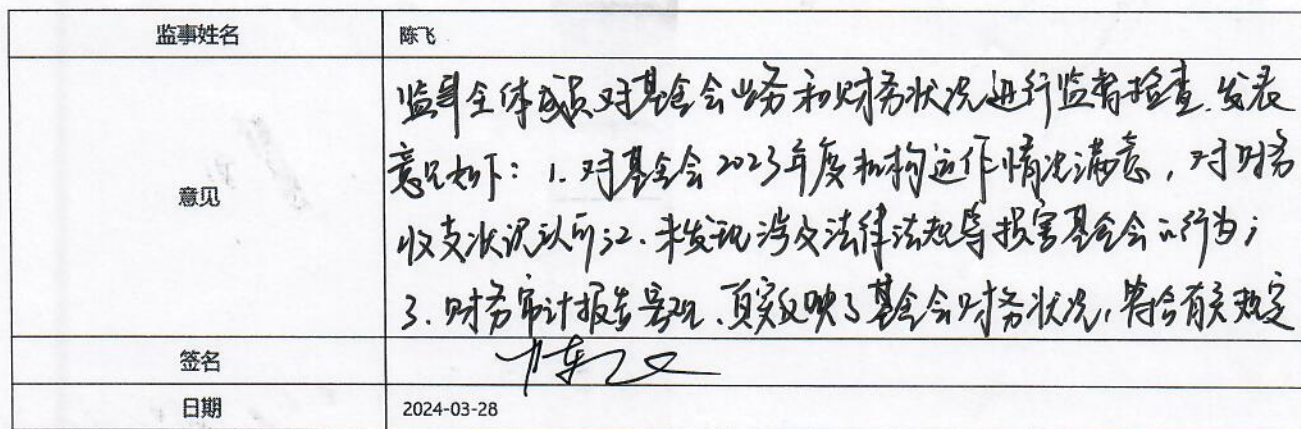 监事姓名 陈飞
意见
监事全体成员对基金会业务和财务状况进行监督检查.发表
意见如下：1.对基金会2023年度机构运作情况满意，对财务
收支状况认可；2.未发现涉及法律法规等损害基金会的行为；
3.财务审计报告客观、真实反映了基金会财务状况，符合有关规定
签名 陈飞
日期 2024-03-28